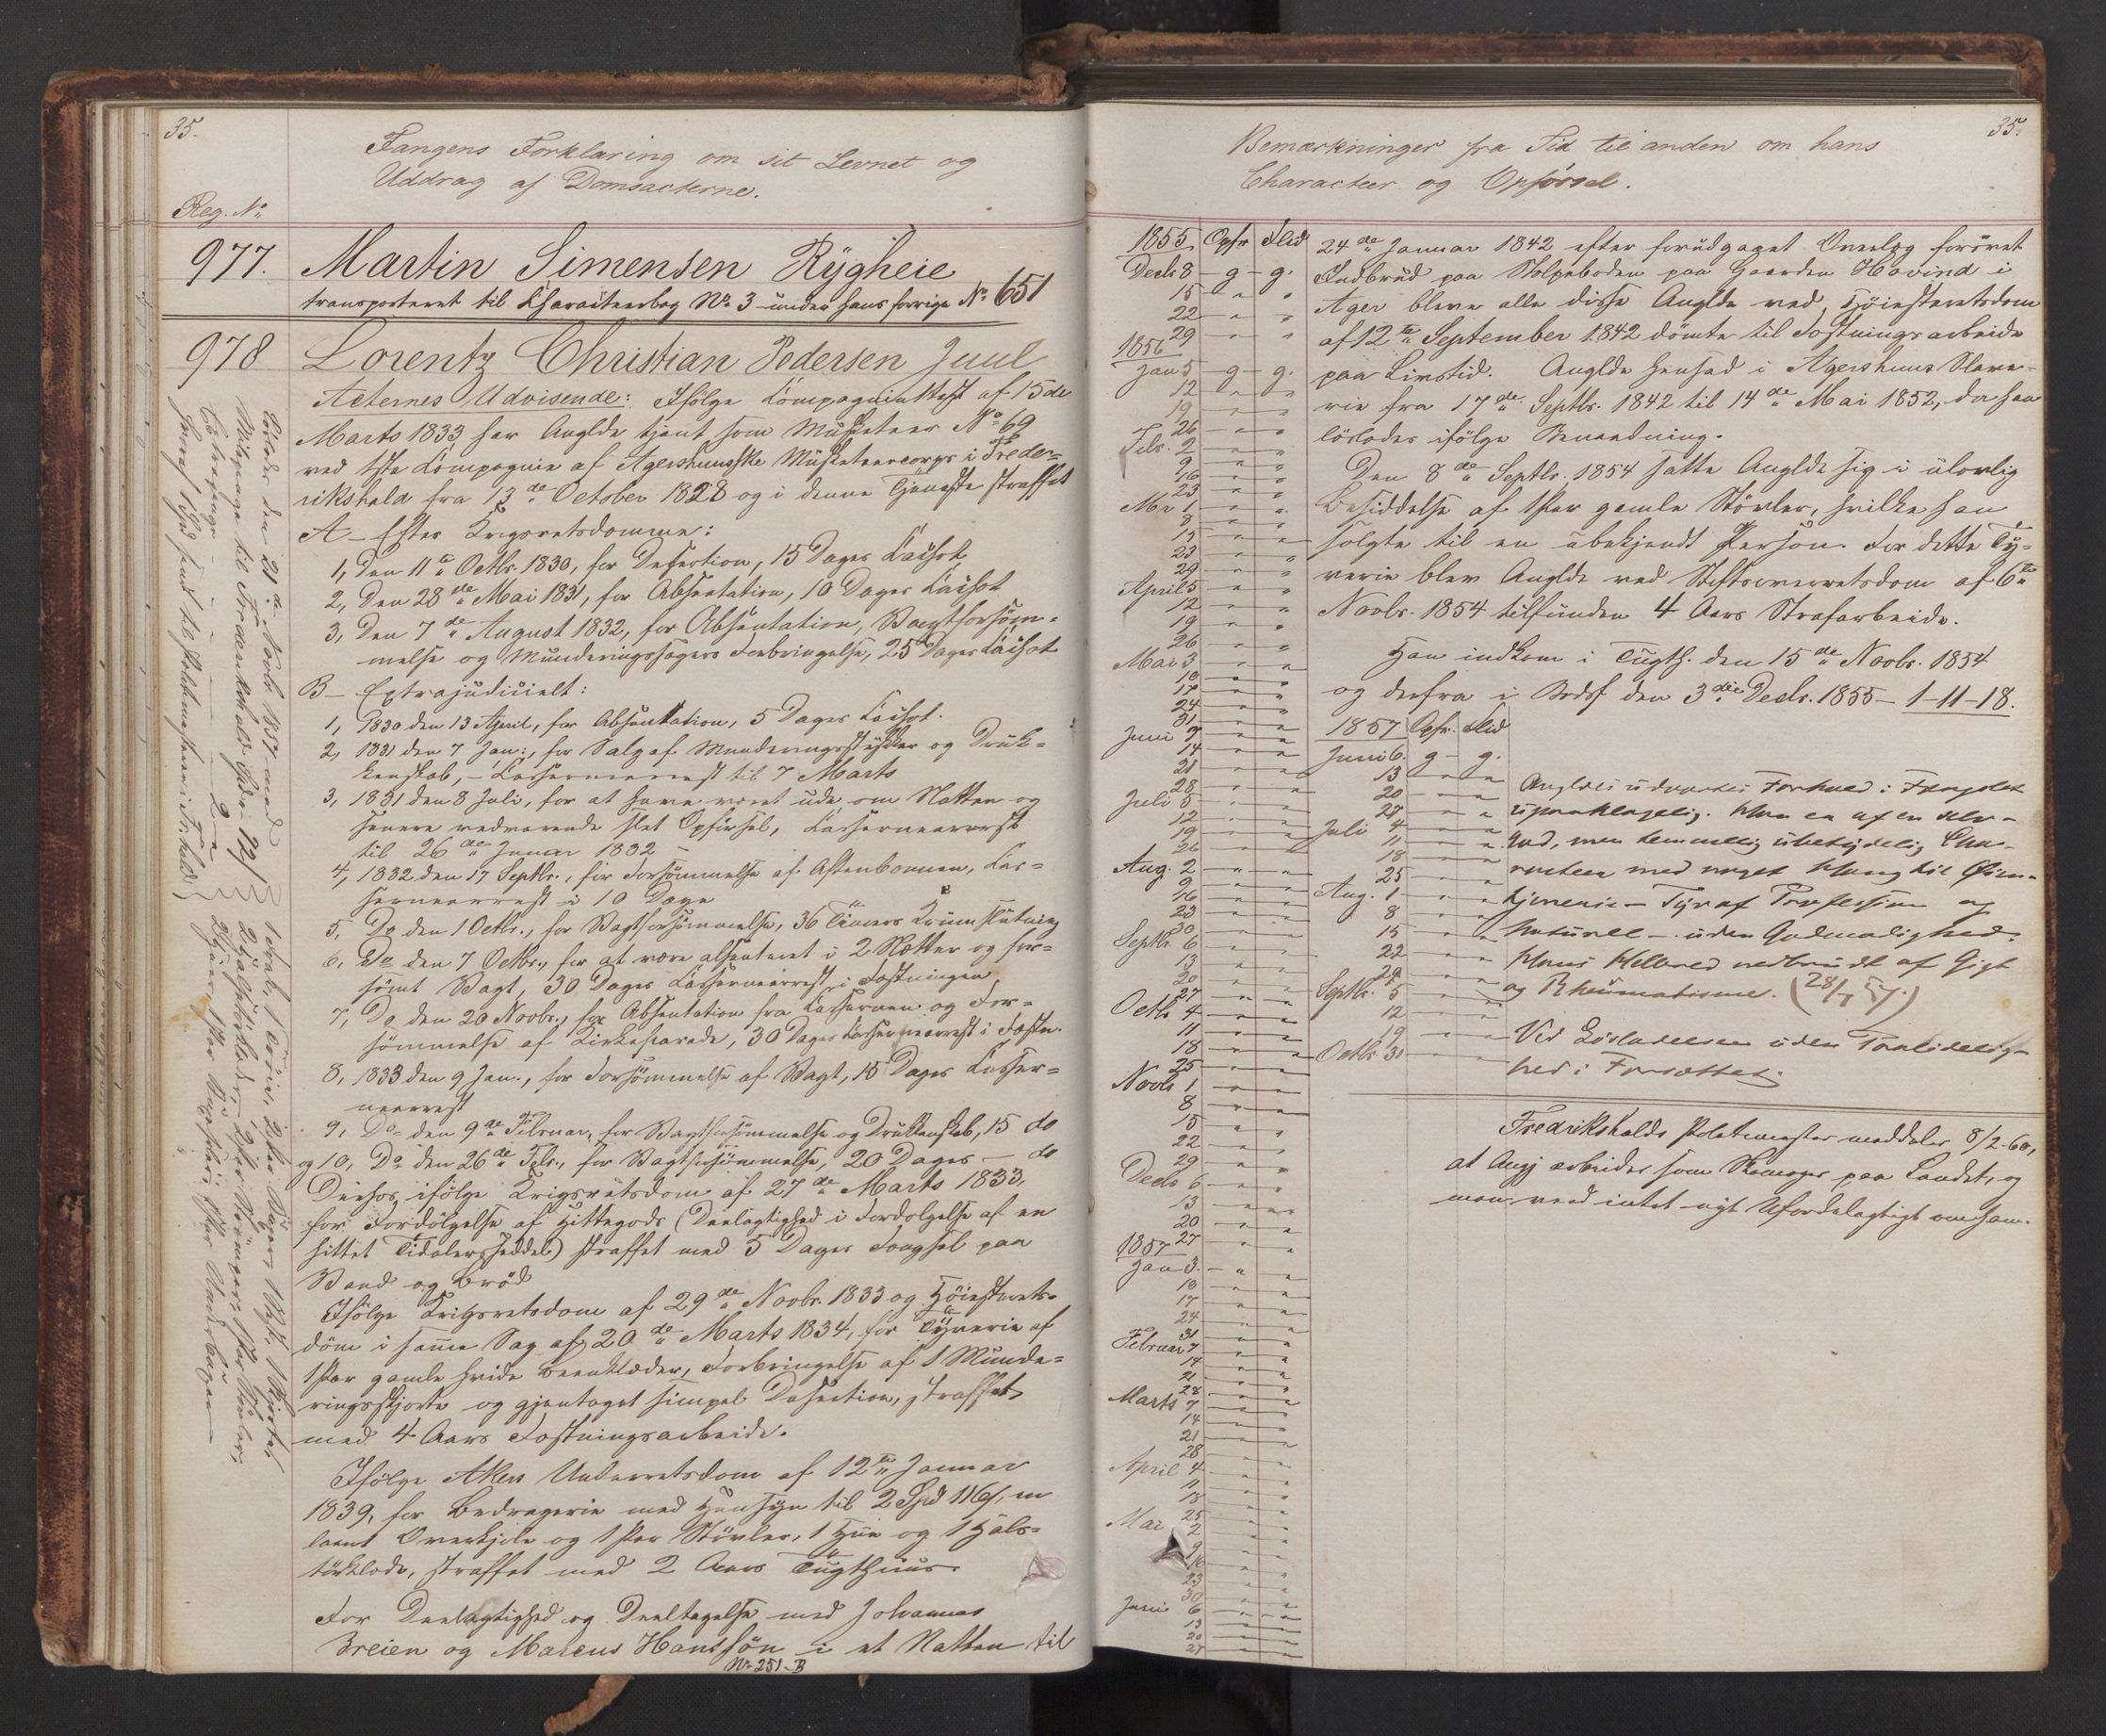 35.
Fangens Forklaring om sit Levnet og
Uddrag af Domsacterne.
Reg. No
977. Martin Simensen Rÿgheie
transporteret til Characteerbog No 3 under hans forrige No 651
978 Lorentz Christian Pedersen Juul
Acternes Udvisende: Ifölge Compagniattest af 15de
Marts 1833, har Angldn tjent som Musketeer No 69
ved 1ste Compagnie af Agershuusske Musketeercorps i Freder-
rikshald fra 13de October 1828 og i denne Tjeneste straffet
A - Efter Krigsretsdomme:
1, Den 11te Octbr. 1830, for Desertion, 15 Dages Cachot
2, Den 28de Mai 1831, for Absentation, 10 Dages Cachot
3, Den 7de August 1832, for Absentation, Vagtforsöm-
melse og Munderingssagers Forbringelse, 25 Dages Cachot
B - Extrajudicielt:
1, 1830 den 13 April, for Absentation, 5 Dages Cachot.
2, 1831 den 7 Jan:, for Salg af Munderingsstykker og Druk-
kenskab, - Cassernearrest til 7 Marts
3, 1831 den 8 Juli, for at have været ude om Natten og
senere vedvarende slet Opförsel, Cassernearrest
til 26de Januar 1832 -
4, 1832 den 17 Septbr., for Forsömmelse af Aftenbönnen, Cas-
sernearrest i 10 Dage
5, Do den 1 Octbr., for Vagtforsömmelse, 36 Timers Krumslutning
6, Do den 7 Octbr., for at være absenteret i 2 Nætter og for-
sömt Vagt, 30 Dages Cassernearrest i Fæstningen
7, Do den 20 Novbr., for Absentation fra Cassernen og For-
sömmelse af Kirkeparade, 30 Dages Cassernearrest i Fæstn.
8, 1833 den 9 Jan., for Forsömmelse af Vagt, 15 Dages Casser-
nearrest
9, Do den 9de Februar, for Vagtforsömmelse og Drukkenskab, 15 do
og 10, Do den 26de Febr., for Vagtforsömmelse, 20 Dages - do
Derhos ifölge Krigsretsdom af 27de Marts 1833,
for Fordölgelse af Hittegods (Deelagtighed i Fordölgelse af en
hittet Tidalersseddel) straffet med 5 Dages Fængsel paa
Vand og Bröd
Ifölge Krigsretsdom af 29de Novbr. 1833 og Höiesterets-
dom i samme Sag af 20de Marts 1834, for Tyverie af
1 Par gamle hvide Beenklæder, Forbringelse af 1 Munde-
ringsskjorte og gjentaget simpel Desertion, straffet
med 4 Aars Fæstningsarbeide.
Ifölge Akers Underretsdom af 12te Januar
1839, for Bedragerie med Hensyn til 2 Spd 116 s, en
laant Overkjole og 1 Par Stövler, 1 Hue og 1 Hals-
törklæde, straffet med 2 Aars Tugthuus.
For Deelagtighed og Deeltagelse med Johannes
Breien og Marcus Hanssön i et Natten til
No 251-B
Löslades den 21de Novbr. 1857 med
35.
Bemærkninger fra Tid til anden om hans
Characteer og Opförsel.
1855 Opfr Flid
Decbr 8 - g - g.
15
22
29
1856
Jan 5 - g - g.
12
19
26
Febr. 2
9
16
23
Mr 1
8
15
23
29
April 5
12
19
26
Mai 3
10
17
24
31
Juni 7
14
21
28
Juli 5
12
19
26
Aug. 2
9
16
23
30
Septbr 6
13
20
27
Octbr 4
11
18
25
Novbr 1
8
15
22
29
Decbr 6
13
20
27
1857
Jan 3.
10
17
24
31
Februar 7
14
21
28
Marts 7
14
21
28
April 4
11
18
25
Mai 2
9
16
23
30
Juni 6
13
20
27
24de Januar 1842 efter forudgaaet Overlæg forövet
Indbrud paa Stolpeboden paa Gaarden Hovind i
Ager bleve alle disse Anglde ved Höiesteretsdom
af 12te September 1842 dömte til Fæstningsarbeide
paa Livstid. Anglde hensad i Agershuus Slave-
rie fra 17de Septbr. 1842 til 14de Mai 1852, da han
löslodes ifölge Benaadning.
Den 8de Septbr. 1854 satte Anglde sig i ulovlig
Besiddelse af 1 Par gamle Stövler, hvilke han
solgte til en ubekjendt Person. For dette Ty-
verie blev Anglde ved Stiftsoverretsdom af 6te
Novbr. 1854 tilfunden 4 Aars Strafarbeide.
Han indkom i Tugth. den 15de Novbr. 1854
og derfra i Bodsf. den 3die Decbr. 1855 - 1-11-18.
1857 Opfr. Flid
Juni 6. g - g.
13
20
27
Juli 4
11
18
25
Aug. 1
8
15
22
29
Septbr. 5
12
19
Octbr 31
Angldes udvortes Forhold i Fængslet
upaaklagelig. Han er af en selv-
god, men temmelig ubetydelig Cha-
racteer med noget Hang til Öien-
tjenerie - Tyv af Profession og
Naturel - uden Godmodighed.
Hans Helbred nedbrudt af Gigt
og Rheumatisme. (28/7 57.)
Ved Lösladelsen uden Paalidelig-
hed i Forsættet.
Fredrikshalds Politimester meddeler 8/2-60,
at Angj arbeider som Skomager paa Landet, og
man veed intet nyt Ufordelagtigt om ham.